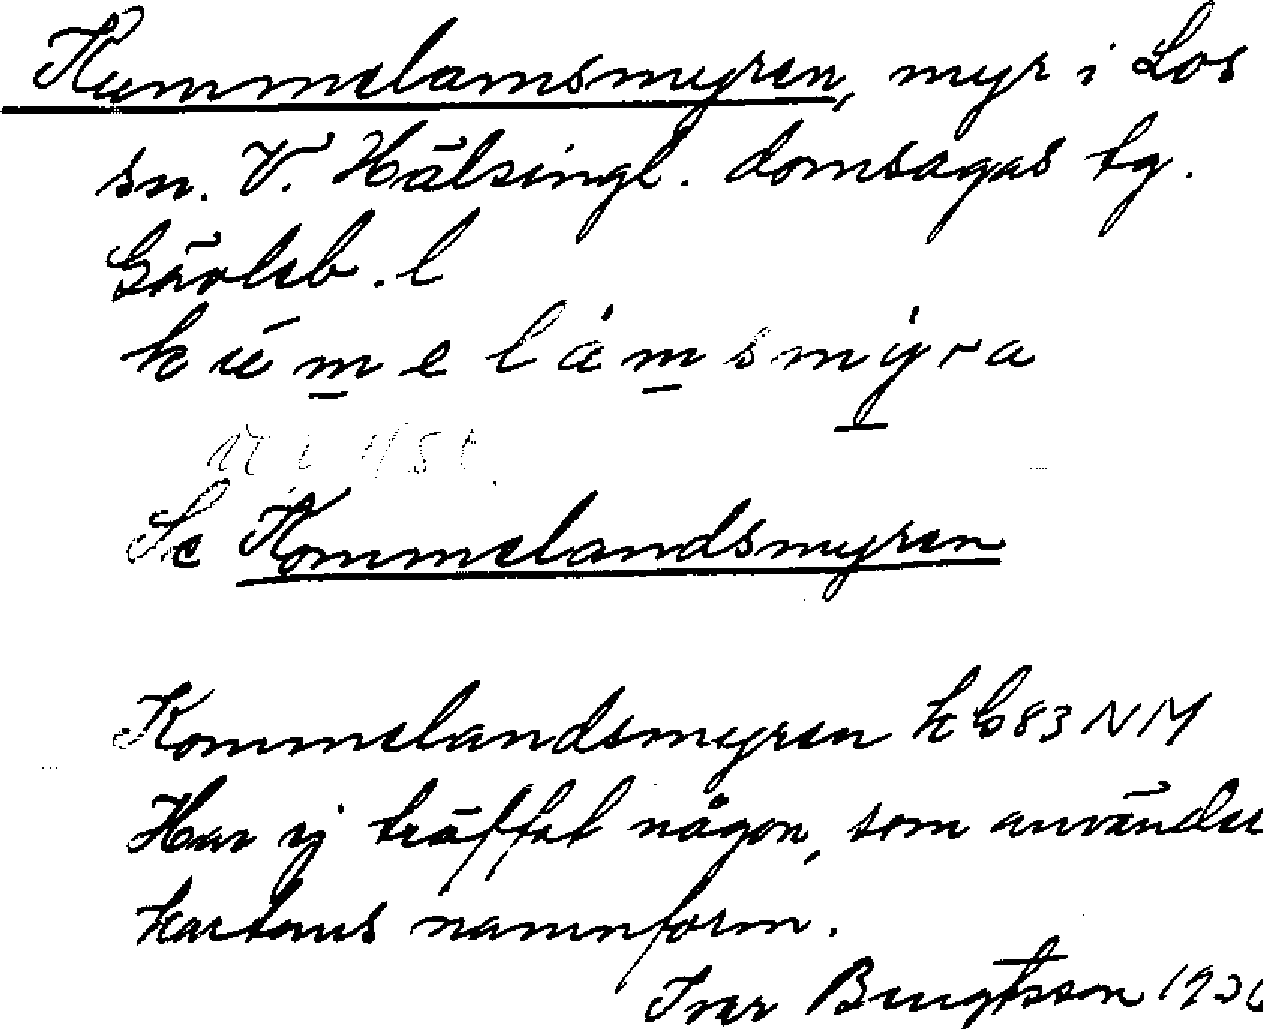 Kummelamsmyren, myr i Los
sn. V. Hälsingl. domsagas tg.
Gävleb. l
kúmelàmsmyra
Se Kommelandsmyren
Kommelandsmyren kb 83 NM
Har ej träffat någon, som använder
kartans namnform.
Ivar Bengtsson